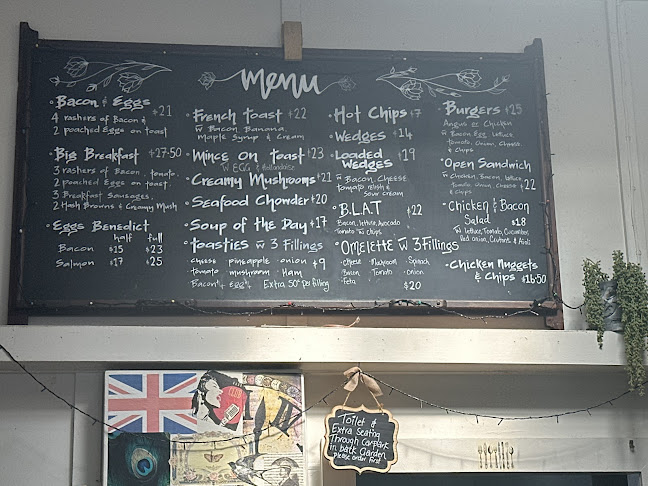 menu
Bacon & Eggs $21
4 rashers of Bacon &
2 poached Eggs on toast
Big Breakfast $27.50
3 rashers of Bacon, tomato,
2 poached Eggs on toast.
3 Breakfast Sausages,
2 Hash Browns & Creamy Mush
Eggs Benedict
half full
Bacon $15 $23
Salmon $17 $25
French toast $22
w Bacon Banana,
Maple Syrup & Cream
Mince on toast $23
w EGG & Hollandaise
Creamy Mushrooms $21
Seafood Chowder $20
Soup of the Day $17
toasties w 3 Fillings
cheese pineapple onion $9
tomato mushroom Ham
Bacon Egg Extra 50c per filling
Hot Chips $7
Wedges $14
Loaded $19
Wedges
w Bacon, Cheese
tomato relish &
Sour cream
B.L.A.T $22
Bacon, lettuce, Avocado
Tomato w chips
Omelette w 3 Fillings
Cheese Mushroom Spinach
Bacon Tomato onion
Feta $20
Burgers $25
Angus or Chicken
w Bacon Egg, lettuce,
tomato, onion, Cheese
& Chips
Open Sandwich
w Chicken, Bacon, lettuce
tomato, onion, Cheese $22
& chips
Chicken & Bacon
Salad $18
w lettuce, Tomato, Cucumber,
Red onion, Croutons & Aioli
Chicken Nuggets
& Chips $16.50
Toilet &
Extra Seating
Through Carpark
in back Garden
Please order first